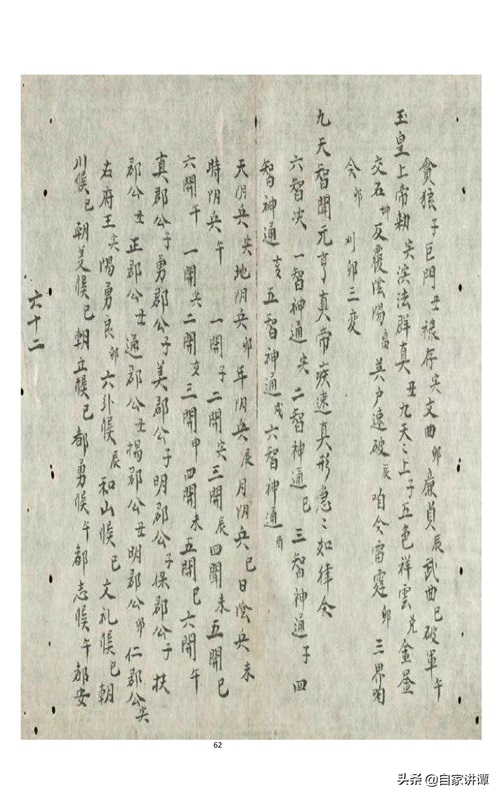 貪狼子巨門丑禄存寅文曲卯廉貞辰武曲巳破軍午
玉皇上帝勅寅演法群真丑九天〻上子五色祥雲兌金星
交石坤反覆陰陽离其户速破辰咱令雷霆卯三界咱
令卯刈卯三変
九天智聞元亨真帝疾速真形急〻如律令
六智决一智神通寅二智神通巳三智神通子四
智神通亥五智神通戌六智神通酉
天阴兵寅地阴兵卯年阴兵辰月阴兵巳日陰兵未
時阴兵午一開子二開寅三開辰四聞未五開巳
六開午一開寅二開亥三開申四開未五開巳六開午
真郡公子勇郡公子美郡公子明郡公子保郡公子扶
郡公丑正郡公丑通郡公丑楊郡公丑明郡公卯仁郡公寅
右府王寅陽勇良卯六外候辰和山候巳文礼候巳朝
川候巳朝美候巳朝立候巳都勇候午都志候午都安
六十二
62
头条@自家讲谭